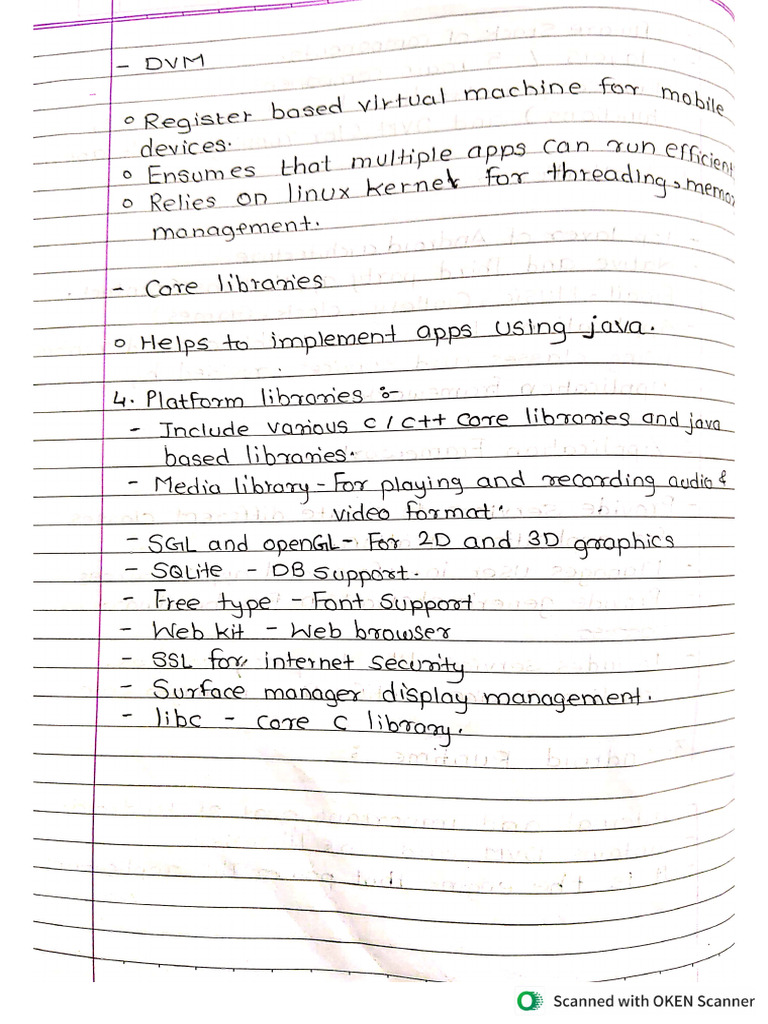 - DVM
o Register based virtual machine for mobile
devices.
o Ensumes that multiple apps can run efficient
o Relies on linux kernel for threading, memo
management.
- Core libraries
o Helps to implement apps using java.
4. Platform libraries :-
- Include various c / c++ core libraries and java
based libraries.
- Media library - For playing and recording audio &
video format.
- SGL and openGL - For 2D and 3D graphics
- SQLite - DB support.
- Free type - Font Support
- Web kit - Web browser
- SSL for internet security
- Surface manager display management.
- libc - core c library.
Scanned with OKEN Scanner